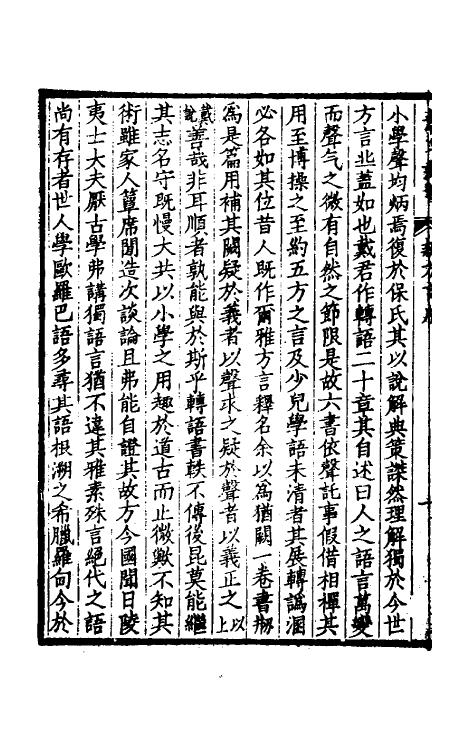 小學聲均炳焉復於保氏其以說解典策謋然理解獨於今世
方言丠蓋如也戴君作轉語二十章其自述曰人之語言萬變
而聲气之微有自然之節限是故六書依聲託事假借相禪其
用至博操之至約五方之言及少兒學語未清者其展轉譌溷
必各如其位昔人既作爾雅方言釋名余以爲猶闕一卷書刱
爲是篇用補其闕疑於義者以聲求之疑於聲者以義正之以上
戴說善哉非耳順者孰能與於斯乎轉語書軼不傳後昆莫能繼
其志名守既慢大共以小學之用趣於道古而止微歟不知其
術雖家人簞席閒造次談論且弗能自證其故方今國聞日陵
夷士大夫厭古學弗講獨語言猶不違其雅素殊言絕代之語
尚有存者世人學歐羅巴語多尋其語根溯之希臘羅甸今於